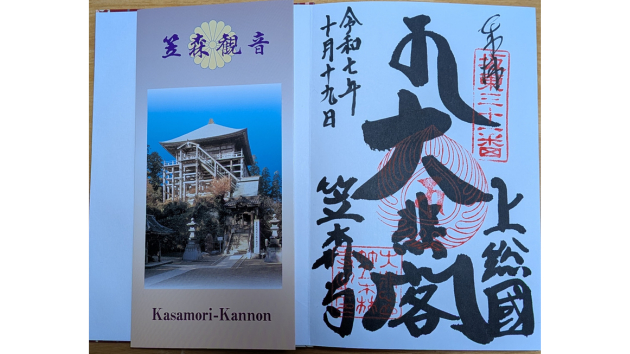 笠森観音
Kasamori-Kannon
奉拝
坂東三十一番
上総國
大悲閣
令和七年
十月十九日
笠森寺